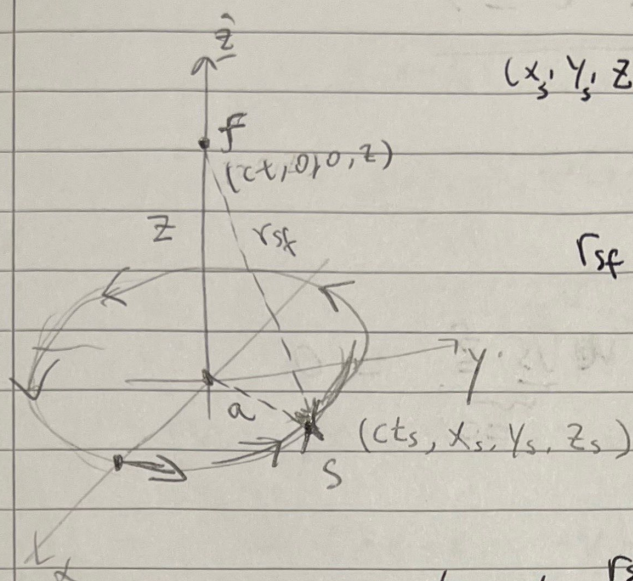 ẑ
(xs, ys, z
f
(ct, 0, 0, z)
z
rsf
rsf
y
a
(cts, xs, ys, zs)
s
x